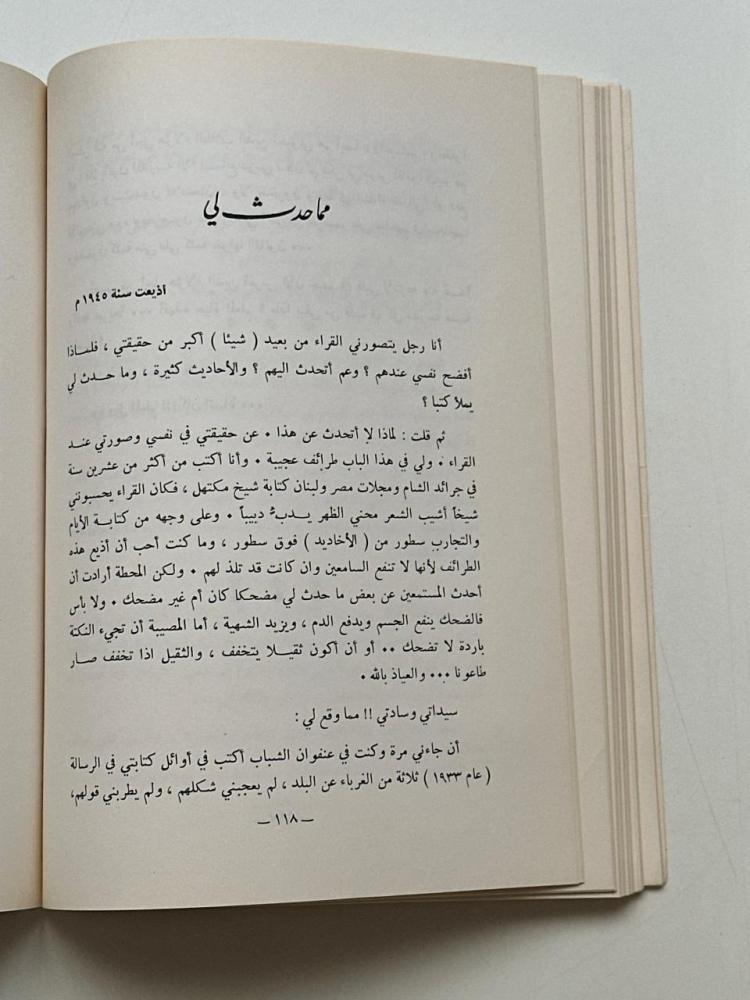 مما حدث لي
اذيعت سنة ١٩٤٥ م
أنا رجل يتصورني القراء من بعيد ( شيئا ) أكبر من حقيقتي ، فلماذا
أفضح نفسي عندهم ؟ وعم أتحدث اليهم ؟ والأحاديث كثيرة ، وما حدث لي
يملأ كتبا ؟
ثم قلت : لماذا لا أتحدث عن هذا ٠ عن حقيقتي في نفسي وصورتي عند
القراء ٠ ولي في هذا الباب طرائف عجيبة ٠ وأنا أكتب من أكثر من عشرين سنة
في جرائد الشام ومجلات مصر ولبنان كتابة شيخ مكتهل ، فكان القراء يحسبونني
شيخاً أشيب الشعر محني الظهر يدبُّ دبيباً ٠ وعلى وجهه من كتابة الأيام
والتجارب سطور من ( الأخاديد ) فوق سطور ، وما كنت أحب أن أذيع هذه
الطرائف لأنها لا تنفع السامعين وان كانت قد تلذ لهم ٠ ولكن المحطة أرادت أن
أحدث المستمعين عن بعض ما حدث لي مضحكا كان أم غير مضحك ٠ ولا بأس
فالضحك ينفع الجسم ويدفع الدم ، ويزيد الشهية ، أما المصيبة أن تجيء النكتة
باردة لا تضحك ٠٠ أو أن أكون ثقيلا يتخفف ، والثقيل اذا تخفف صار
طاعونا ٠٠٠ والعياذ بالله ٠
سيداتي وسادتي !! مما وقع لي :
أن جاءني مرة وكنت في عنفوان الشباب أكتب في أوائل كتابتي في الرسالة
( عام ١٩٣٣ ) ثلاثة من الغرباء عن البلد ، لم يعجبني شكلهم ، ولم يطربني قولهم،
— ١١٨ —